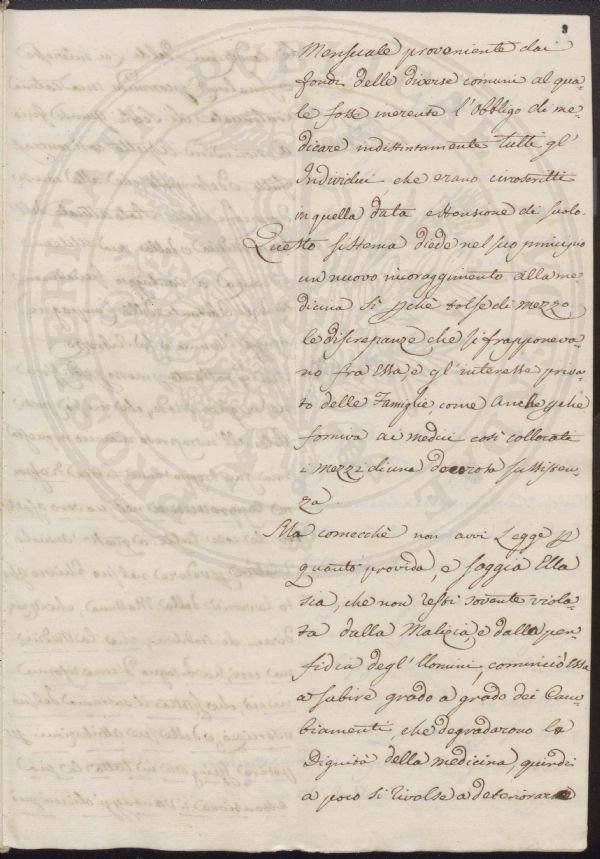 8
Mensuale proveniente dai
fondi delle diverse comuni al qua-
le fosse inerente l'Obbligo di me-
dicare indistintamente tutti gl'
Individui, che erano circoscritti
in quella data estensione di suolo.
Questo sistema diede nel suo principio
un nuovo incoraggimento alla me-
dicina si pchè tolse di mezzo
le discrepanze che si frappone va-
no fra Essa, e gl'interesse priva-
to delle Famiglie come Anche pchè
forniva ai medici così collocati
i mezzi di una decorosa sussisten-
za
Ma comecchè non avvi Legge p
quanto provida, e saggia Ella
sia, che non resti sovente viola-
ta dalla Malizia, e dalla per-
fidia degl'Uomini, cominciò Essa
a subire grado a grado dei Cam-
biamenti, che degradarono la
Dignità della medicina, quindi
a poco si rivolse a deteriorare